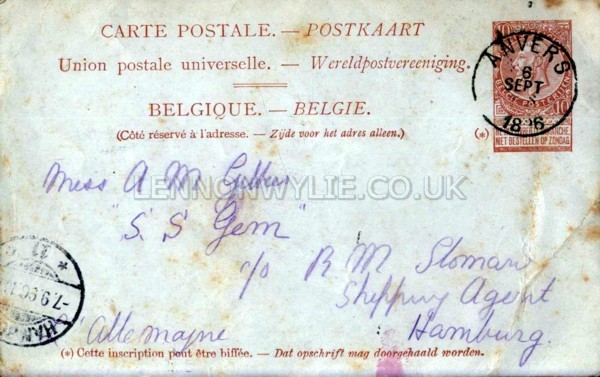 CARTE POSTALE. — POSTKAART
Union postale universelle. — Wereldpostvereeniging.
BELGIQUE. — BELGIE.
(Côté réservé à l'adresse. — Zijde voor het adres alleen.)
(*)
ANVERS
6
SEPT
10
10
NIET BESTELLEN OP ZONDAG
LENNONWYLIE.CO.UK
Mess A M
"S. S Gem"
c/o R M Sloman
Shipping Agent
Hamburg.
Allemagne
(*) Cette inscription peut être biffée. — Dat opschrift mag doorgehaald worden.